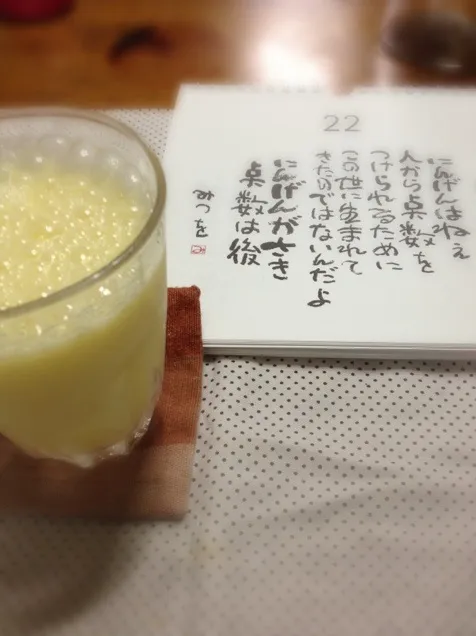 22
にんげんはねぇ
人から点数を
つけられるために
この世に生まれて
きたのではないんだよ
にんげんがさき
点数は後
みつを